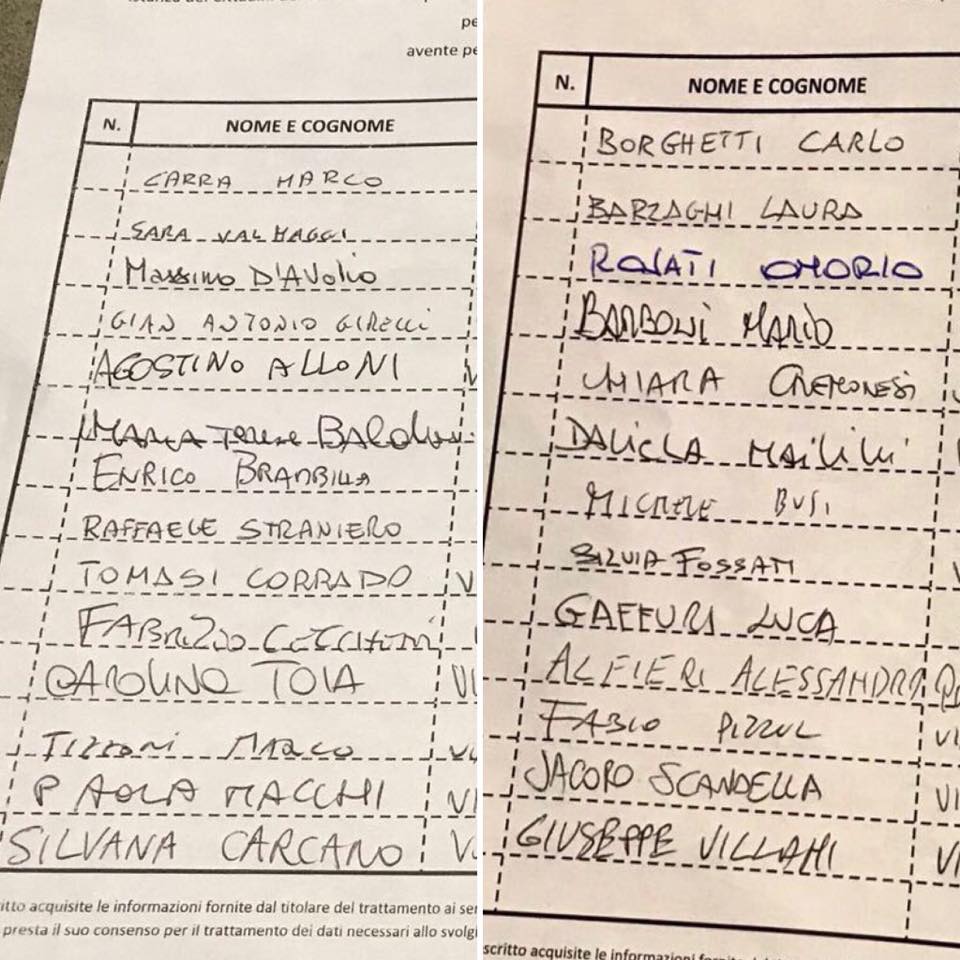 pe
avente pe
N. NOME E COGNOME
CARRA MARCO
SARA VALMAGGI
Massimo D'AVolio
GIAN ANTONIO GIRELLI
AGOSTINO ALLONI
MARIA Teresa
ENRICO BRAMBILLA
RAFFAELE STRANIERO
TOMASI CORRADO V
FABRIZIO CECCHETTI
CAROLINO TOIA VI
TIZZONI MARCO
PAOLA MACCHI VI
SILVANA CARCANO
itto acquisite le informazioni fornite dal titolare del trattamento ai se
presta il suo consenso per il trattamento dei dati necessari allo svolg
N. NOME E COGNOME
BORGHETTI CARLO
BARZAGHI LAURA
ROSATI ONORIO
BARBONI MARIO
CHIARA CREMONESI
MICHELE BUSI
SILVIA FOSSATI
GAFFURI LUCA
ALFIERI ALESSANDRO
FABIO PIZZUL VI
JACOPO SCANDELLA VI
GIUSEPPE VILLANI VI
scritto acquisite le informazioni